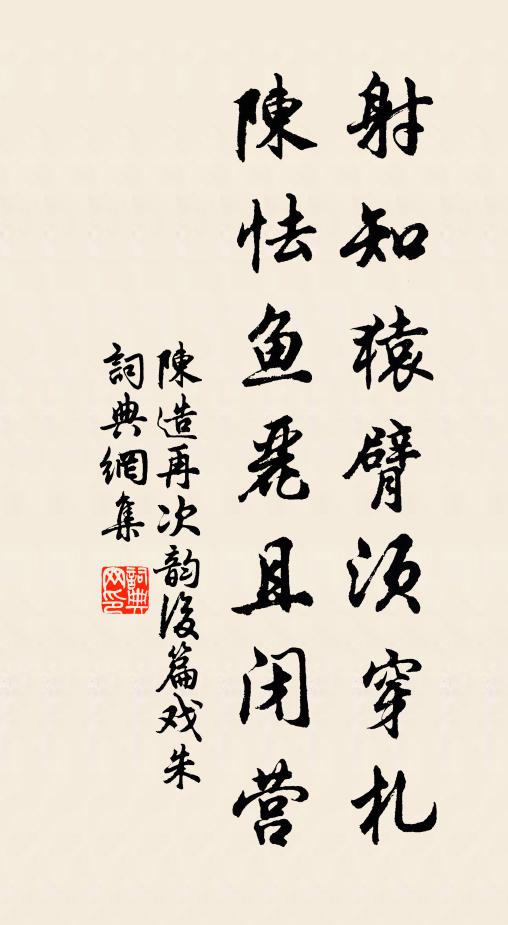 射知猿臂须穿札
陳怯鱼麗且闭营
陳造再次韵後篇戏朱
詞典網集
詞典網印